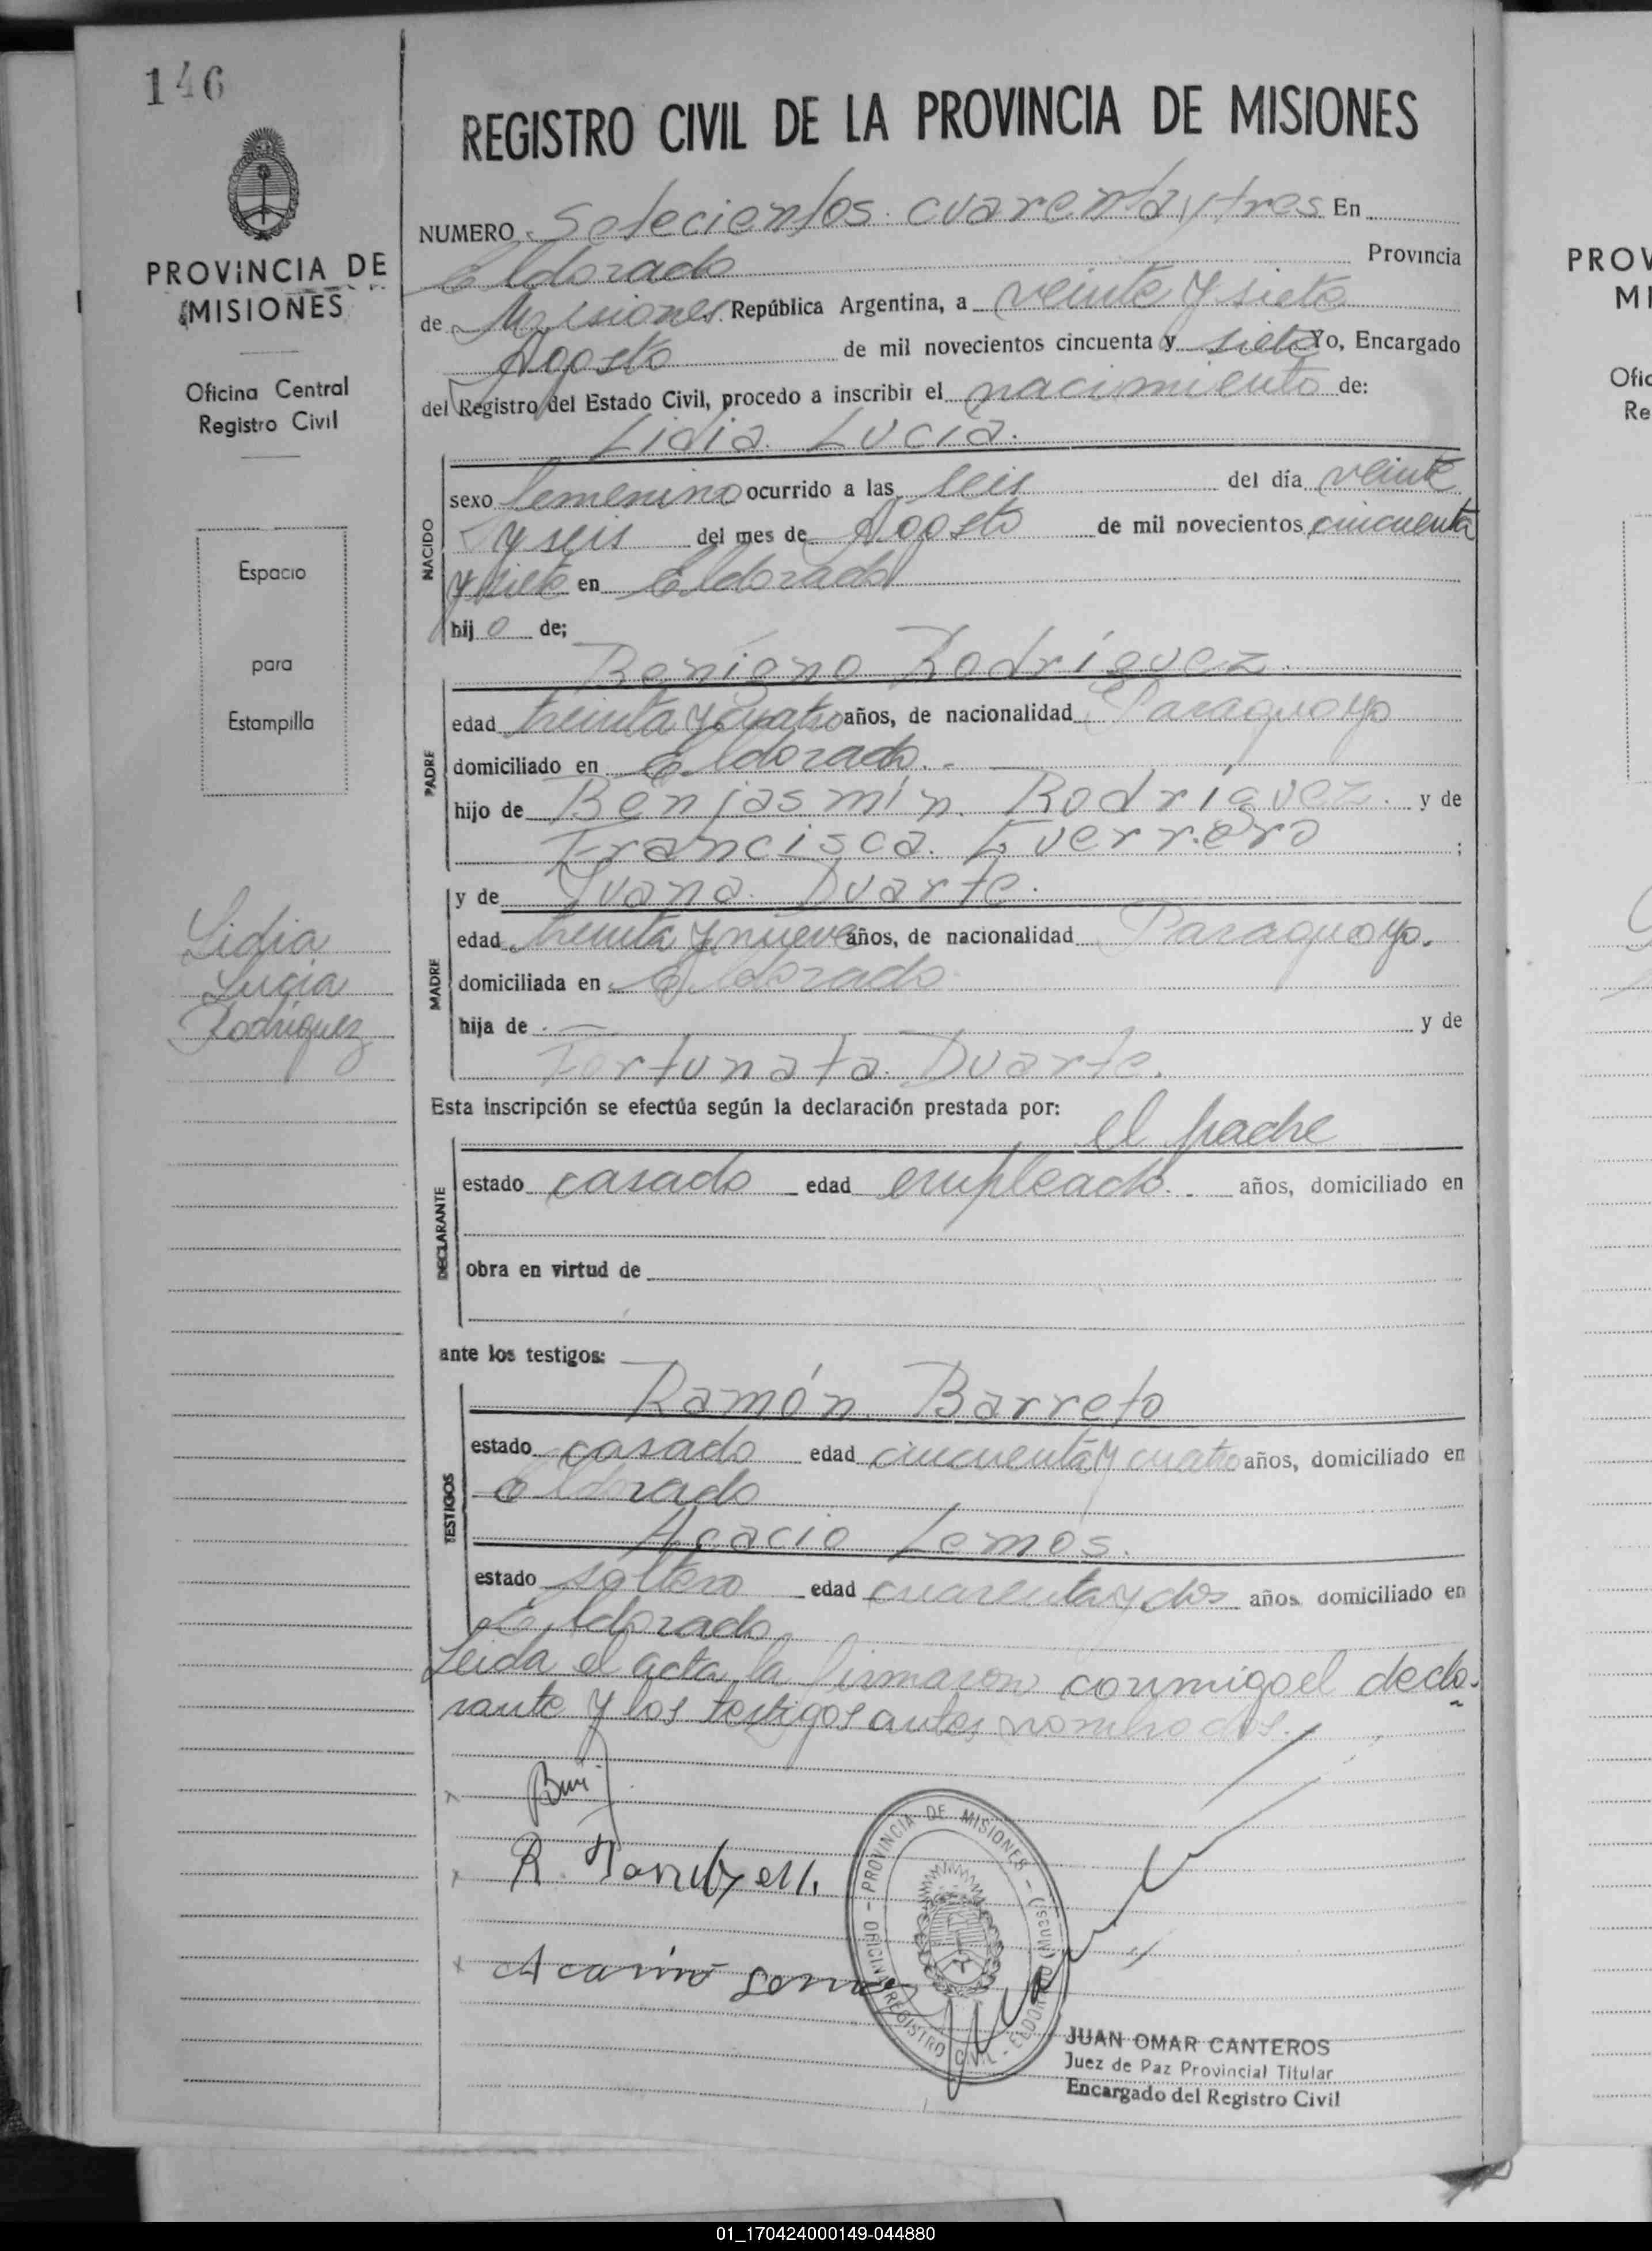 146
PROVINCIA DE
MISIONES
Oficina Central
Registro Civil
Espacio
para
Estampilla
Lidia
Lucia
Rodriguez
REGISTRO CIVIL DE LA PROVINCIA DE MISIONES
NUMERO Setecientos cuarenta y tres En
Eldorado Provincia
de Misiones República Argentina, a veinte y siete
Agosto de mil novecientos cincuenta y siete Yo, Encargado
del Registro del Estado Civil, procedo a inscribir el nacimiento de:
Lidia Lucia.
NACIDO
sexo femenino ocurrido a las seis del día veinte
y seis del mes de Agosto de mil novecientos cincuenta
y siete en Eldorado
hijo de;
Benigno Rodríguez.
PADRE
edad treinta y cuatro años, de nacionalidad Paraguayo
domiciliado en Eldorado.-
hijo de Benjasmín Rodríguez. y de
Francisca Guerrero ;
y de Juana Duarte.
MADRE
edad treinta y nueve años, de nacionalidad Paraguayo.
domiciliada en Eldorado
hija de . — y de
Fortunata Duarte.
Esta inscripción se efectúa según la declaración prestada por:
el padre
DECLARANTE
estado casado edad empleado. años, domiciliado en
obra en virtud de
ante los testigos:
Ramón Barreto
TESTIGOS
estado casado edad cincuenta y cuatro años, domiciliado en
Eldorado
Acacio Lemos.
estado soltero edad cuarenta y dos años domiciliado en
Eldorado
Leida el acta la firmaron conmigo el decla-
rante y los testigos antes nombrados.
PROVINCIA DE MISIONES - OFICINA REGISTRO CIVIL - ELDORADO (Mnes.)
JUAN OMAR CANTEROS
Juez de Paz Provincial Titular
Encargado del Registro Civil
PROV
MI
Ofic
Re
01_170424000149-044880